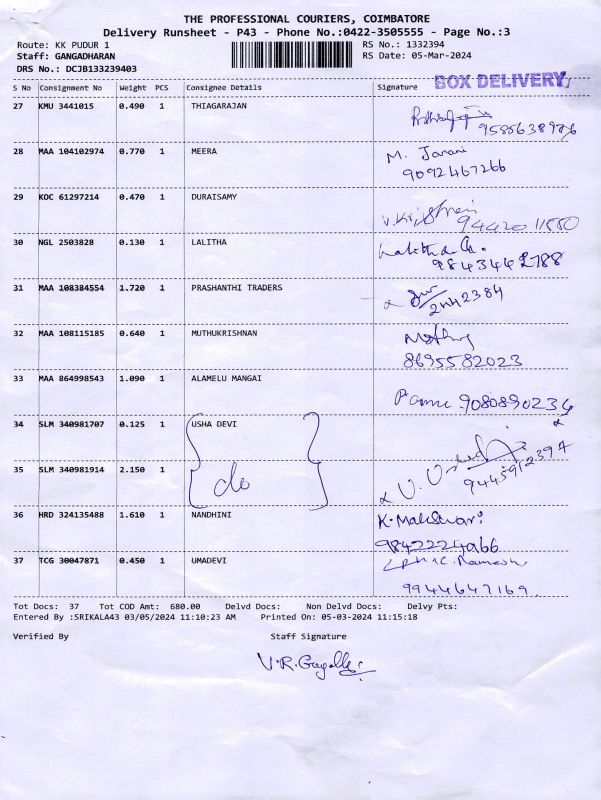 THE PROFESSIONAL COURIERS, COIMBATORE
Delivery Runsheet - P43 - Phone No.:0422-3505555 - Page No.:3
Route: KK PUDUR 1 RS No.: 1332394
Staff: GANGADHARAN RS Date: 05-Mar-2024
DRS No.: DCJB133239403
BOX DELIVERY
S No Consignment No Weight PCS Consignee Details Signature
27 KMU 3441015 0.490 1 THIAGARAJAN
28 MAA 104102974 0.770 1 MEERA M. Janani
9092467266
29 KOC 61297214 0.470 1 DURAISAMY
9442011550
30 NGL 2503828 0.130 1 LALITHA Lalitha
31 MAA 108384554 1.720 1 PRASHANTHI TRADERS
2442384
32 MAA 108115185 0.640 1 MUTHUKRISHNAN
8695582023
33 MAA 864998543 1.090 1 ALAMELU MANGAI 9080890234
34 SLM 340981707 0.125 1 USHA DEVI
35 SLM 340981914 2.150 1 do
36 HRD 324135488 1.610 1 NANDHINI K. Maheswari
37 TCG 30047871 0.450 1 UMADEVI Ramesh
9944647169
Tot Docs: 37 Tot COD Amt: 680.00 Delvd Docs: Non Delvd Docs: Delvy Pts:
Entered By :SRIKALA43 03/05/2024 11:10:23 AM Printed On: 05-03-2024 11:15:18
Verified By Staff Signature